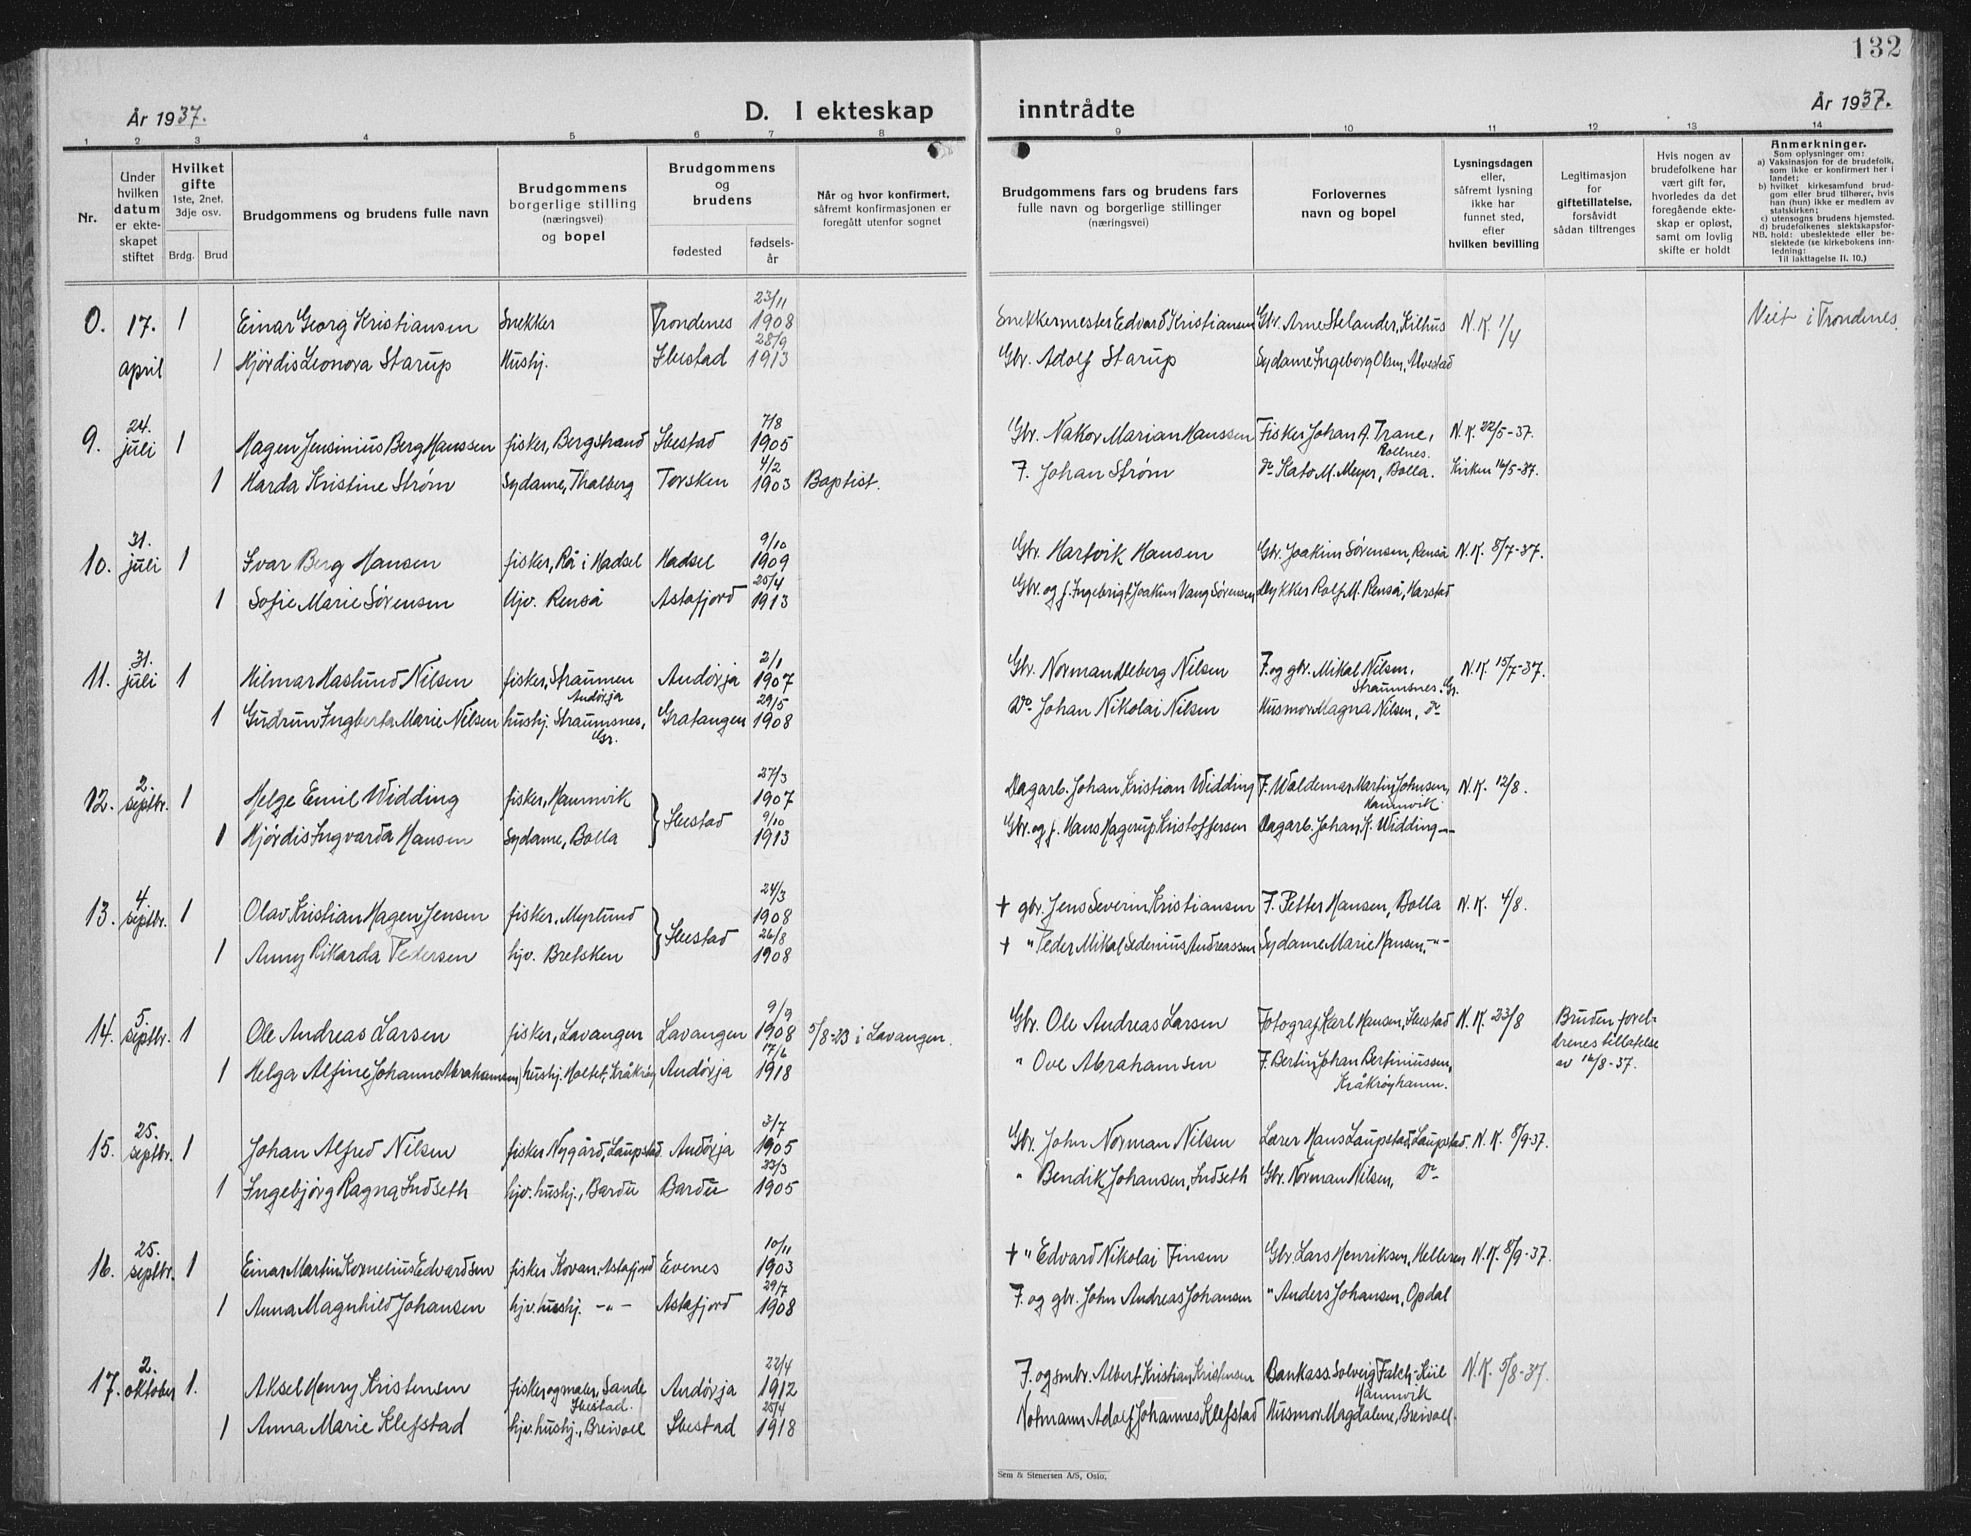 132
År 1937. D. I ekteskap inntrådte År 1937.
1 2 3 4 5 6 7 8 9 10 11 12 13 14
Nr.
Under hvilken datum er ekteskapet stiftet
Hvilket gifte 1ste, 2net. 3dje osv.
Brdg. Brud
Brudgommens og brudens fulle navn
Brudgommens borgerlige stilling (næringsvei) og bopel
Brudgommens og brudens
fødested fødselsår
Når og hvor konfirmert, såfremt konfirmasjonen er foregått utenfor sognet
Brudgommens fars og brudens fars fulle navn og borgerlige stillinger (næringsvei)
Forlovernes navn og bopel
Lysningsdagen eller, såfremt lysning ikke har funnet sted, efter hvilken bevilling
Legitimasjon for giftetillatelse, forsåvidt sådan tiltrenges
Hvis nogen av brudefolkene har vært gift før, hvorledes da det foregående ekteskap er opløst, samt om lovlig skifte er holdt
Anmerkninger.
Som oplysninger om:
a) Vaksinasjon for de brudefolk, som ikke er konfirmert her i landet;
b) hvilket kirkesamfund brudgom eller brud tilhører, hvis han (hun) ikke er medlem av statskirken;
c) utensogns brudens hjemsted.
d) brudefolkenes slektskapsforhold: ubeslektede eller beslektede (se kirkebokens innledning:
NB.
Til iakttagelse II. 10.)
0. 17. april 1 Einar Georg Kristiansen Snekker Trondenes 23/11 1908 Snekkermester Edvard Kristiansen Gbr. Arne Stelander, Kilhus N.K. 1/4 Viet i Trondenes
1 Hjørdis Leonora Starup Hushj. Ibestad 28/9 1913 Gbr. Adolf Starup Sydame Ingeborg Olsen, Alvestad
9. 24. juli 1 Hagen Jensinius Berg Hanssen fisker, Bergstrand Ibestad 7/8 1905 Gbr. Nakor Marian Hanssen Fisker Johan A. Trane, Rollnes. N.K. 22/5-37.
1 Harda Kristine Strøm Sydame, Thalberg Torsken 4/2 1903 Baptist. F. Johan Strøm Do Kato M. Meyer, Bolla. Kirken 16/5-37.
10. 31. juli 1 Ivar Berg Hansen fisker, Rå i Hadsel Hadsel 9/10 1909 Gbr. Hartvik Hansen Gbr. Joakim Sørensen, Renså N.K. 8/7-37.
1 Sofie Marie Sørensen Hjv. Renså Astafjord 25/4 1913 Gbr. og f. Ingebrigt Joakim Vang Sørensen Dykker Rolf M. Renså, Harstad
11. 31. juli 1 Hilmar Haslund Nilsen fisker, Straumen Andørja Andørja 2/1 1907 Gbr. Norman Oleberg Nilsen F. og gbr. Mikal Nilsen, Straumsnes, Gr. N.K. 15/7-37.
1 Gudrun Ingberta Marie Nilsen hushj. Straumsnes, Gr. Gratangen 29/5 1908 Do. Johan Nikolai Nilsen Husmor Magna Nilsen, Do
12. 2. septbr. 1 Helge Emil Widding fisker, Hamnvik Ibestad 27/3 1907 Dagarb. Johan Kristian Widding F. Waldemar Martin Johnsen, Hamnvik N.K. 12/8.
1 Hjørdis Ingvarda Hansen Sydame, Bolla 9/10 1913 Gbr. og f. Hans Hagerup Kristoffersen Dagarb. Johan K. Widding -"-
13. 4. septbr. 1 Olav Kristian Hagen Jensen fisker, Myrlund Ibestad 24/3 1908 + gbr. Jens Severin Kristiansen F. Petter Hansen, Bolla N.K. 4/8.
1 Anny Rikarda Pedersen hjv. Bretsken 26/8 1908 + " Peder Mikal Sedenius Andreassen Sydame Marie Hansen, -"-
14. 5. septbr. 1 Ole Andreas Larsen fisker, Lavangen Lavangen 9/9 1908 5/8-23 i Lavangen. Gbr. Ole Andreas Larsen Fotograf Karl Hansen, Ibestad N.K. 23/8 Bruden foreldrenes tillatelse av 16/8-37.
1 Helga Alfine Johanne Abrahamsen hushj. Holtet, Kråkrøy Andørja 17/6 1918 " Ove Abrahamsen F. Bertin Johan Bertiniussen, Kråkrøyhamn.
15. 25. septbr. 1 Johan Alfred Nilsen fisker Nygård, Laupstad Andørja 3/7 1905 Gbr. John Norman Nilsen Lærer Hans Laupstad, Laupstad. N.K. 8/9-37.
1 Ingebjørg Ragna Indseth hjv. hushj., Bardu Bardu 23/3 1905 " Bendik Johansen, Indseth Gbr. Norman Nilsen, Do
16. 25. septbr. 1 Einar Martin Kornelius Edvardsen fisker Kovan, Astafjord Evenes 10/11 1903 + " Edvard Nikolai Finsen Gbr. Lars Henriksen, Helleren N.K. 8/9-37.
1 Anna Magnhild Johansen hjv. hushj. -"- Astafjord 29/7 1908 F. og gbr. John Andreas Johansen " Anders Johansen, Opdal
17. 2. oktober 1. Aksel Henry Kristensen fisker og maler, Sande Ibestad. Andørja 22/4 1912 F. og smbr. Albert Kristian Kristensen Bankass. Solveig Falch-Kiil Hamnvik N.K. 5/8-37.
1 Anna Marie Klefstad hjv. hushj., Breivoll Ibestad 25/4 1918 Notmann Adolf Johannes Klefstad Husmor Magdalene, Breivoll.
Sem & Stenersen A/S, Oslo.